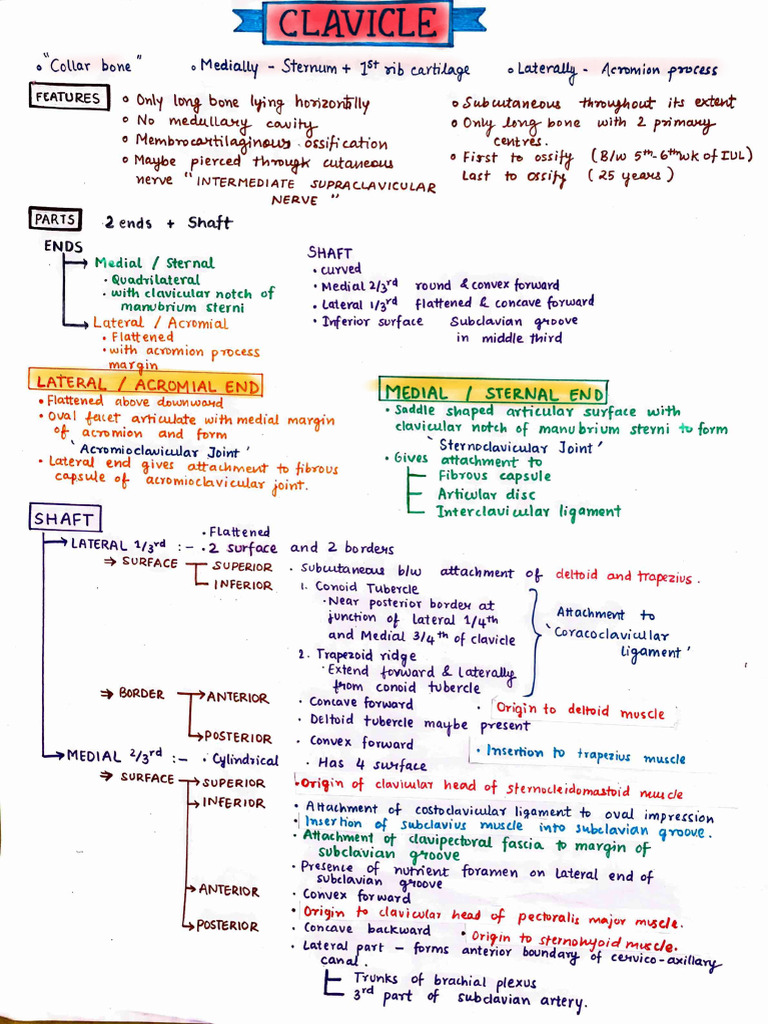 CLAVICLE
• "Collar bone" • Medially - Sternum + 1st rib cartilage • Laterally - Acromion process
FEATURES
• Only long bone lying horizontally
• No medullary cavity
• Membrocartilaginous ossification
• Maybe pierced through cutaneous
nerve "INTERMEDIATE SUPRACLAVICULAR
NERVE"
• Subcutaneous throughout its extent
• Only long bone with 2 primary
centres.
• First to ossify (B/w 5th-6th wk of IUL)
Last to ossify (25 years)
PARTS 2 ends + Shaft
ENDS
Medial / Sternal
• Quadrilateral
• with clavicular notch of
manubrium sterni
Lateral / Acromial
• Flattened
• with acromion process
margin
SHAFT
• curved
• Medial 2/3rd round & convex forward
• Lateral 1/3rd flattened & concave forward
• Inferior surface Subclavian groove
in middle third
LATERAL / ACROMIAL END
• Flattened above downward
• Oval facet articulate with medial margin
of acromion and form
'Acromioclavicular Joint'
• Lateral end gives attachment to fibrous
capsule of acromioclavicular joint.
MEDIAL / STERNAL END
• Saddle shaped articular surface with
clavicular notch of manubrium sterni to form
'Sternoclavicular Joint'
• Gives attachment to
Fibrous capsule
Articular disc
Interclavicular ligament
SHAFT
• Flattened
LATERAL 1/3rd :- • 2 surface and 2 borders
⇒ SURFACE SUPERIOR • Subcutaneous b/w attachment of deltoid and trapezius.
INFERIOR 1. Conoid Tubercle
• Near posterior border at
junction of lateral 1/4th
and Medial 3/4th of clavicle
2. Trapezoid ridge
• Extend forward & laterally
from conoid tubercle
Attachment to
'Coracoclavicular
ligament'
⇒ BORDER ANTERIOR • Concave forward • Origin to deltoid muscle
• Deltoid tubercle maybe present
POSTERIOR • Convex forward • Insertion to trapezius muscle
MEDIAL 2/3rd :- • Cylindrical • Has 4 surface
⇒ SURFACE SUPERIOR • Origin of clavicular head of sternocleidomastoid muscle
INFERIOR • Attachment of costoclavicular ligament to oval impression
• Insertion of subclavius muscle into subclavian groove.
• Attachment of clavipectoral fascia to margin of
subclavian groove
• Presence of nutrient foramen on lateral end of
subclavian groove
ANTERIOR • Convex forward
• Origin to clavicular head of pectoralis major muscle.
POSTERIOR • Concave backward • Origin to sternohyoid muscle.
• Lateral part - forms anterior boundary of cervico-axillary
canal.
Trunks of brachial plexus
3rd part of subclavian artery.